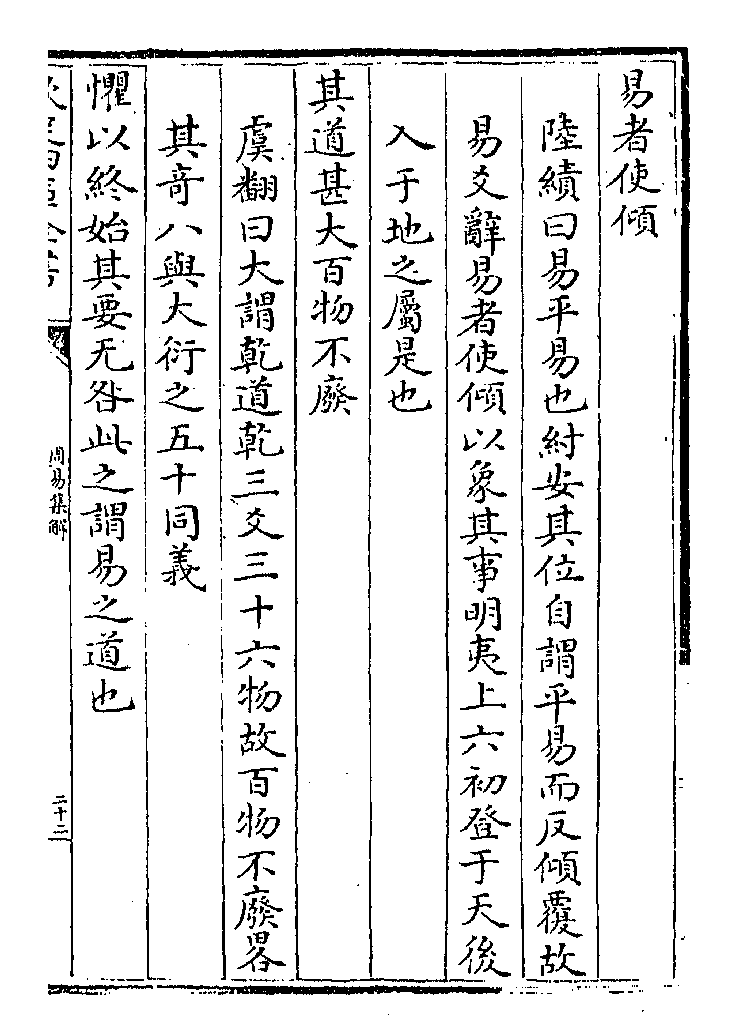 易者使傾
陸績曰易平易也紂安其位自謂平易而反傾覆故
易爻辭易者使傾以象其事明夷上六初登于天後
入于地之屬是也
其道甚大百物不廢
虞翻曰大謂乾道乾三爻三十六物故百物不廢畧
其奇八與大衍之五十同義
懼以終始其要无咎此之謂易之道也
周易集解
二十二